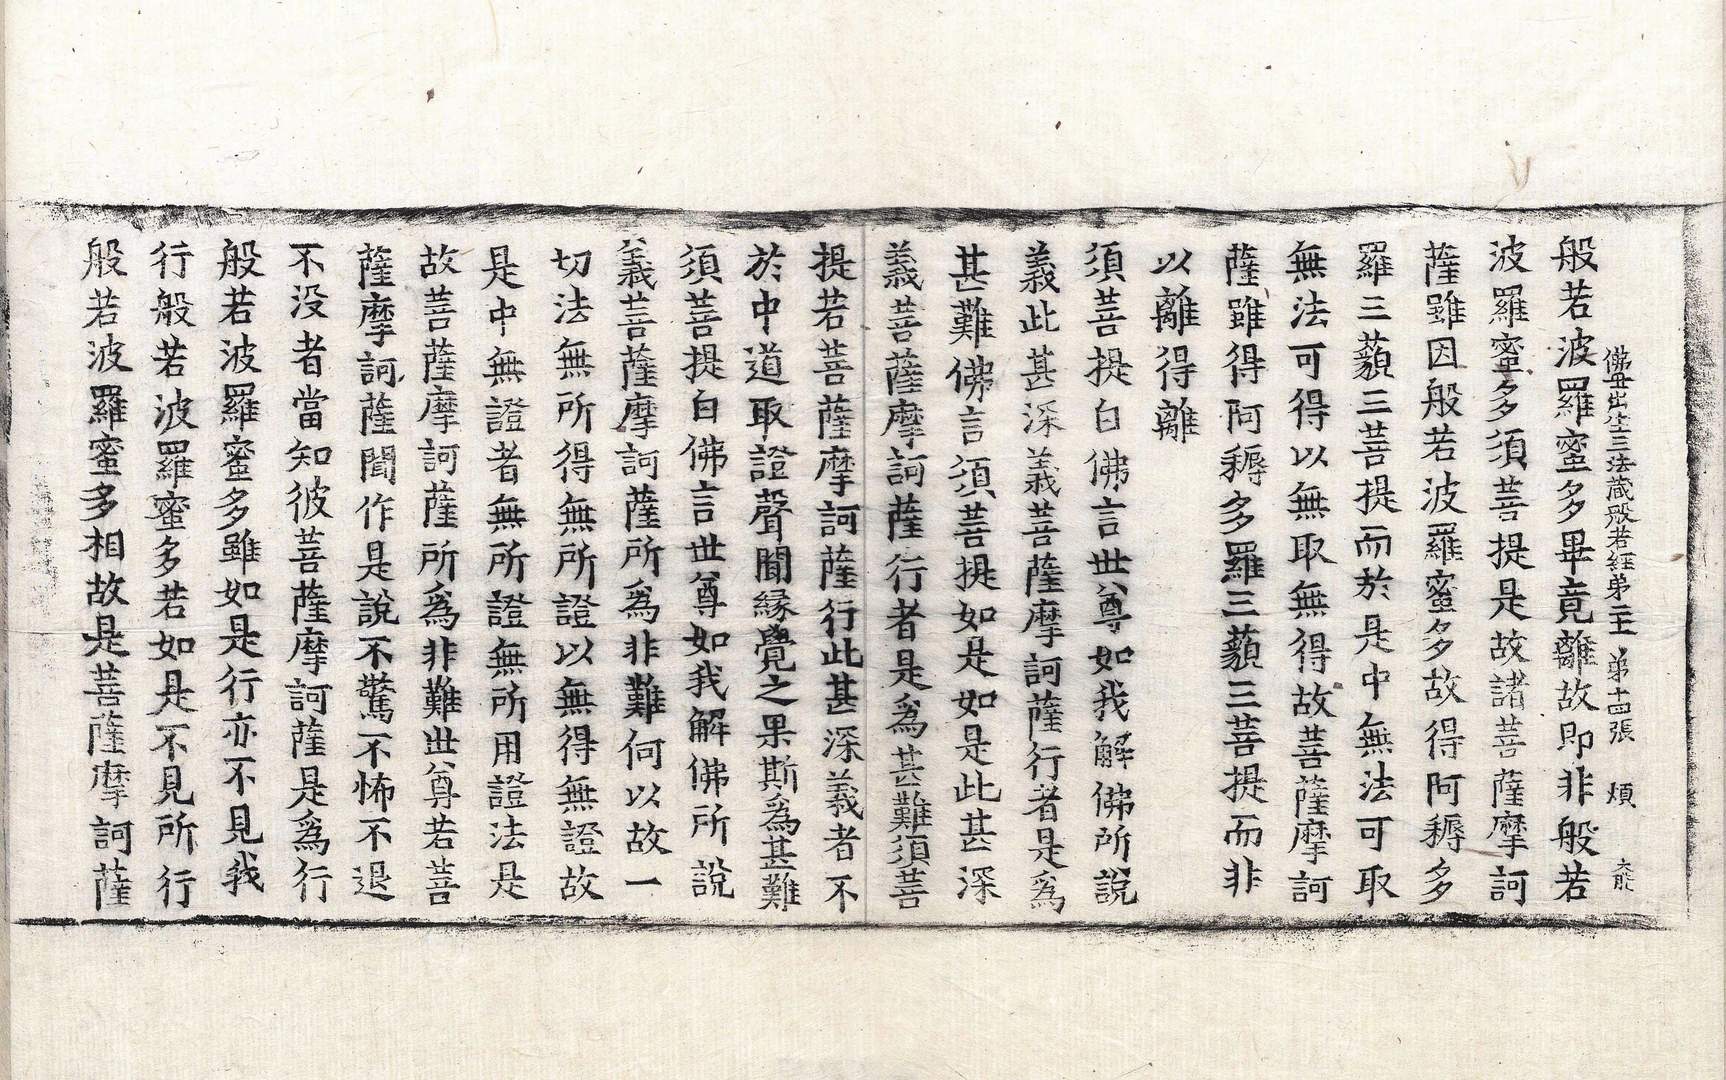 佛母出生三法藏般若經弟二 弟十四張 煩
般若波羅蜜多畢竟離故即非般若
波羅蜜多須菩提是故諸菩薩摩訶
薩雖因般若波羅蜜多故得阿耨多
羅三藐三菩提而於是中無法可取
無法可得以無取無得故菩薩摩訶
薩雖得阿耨多羅三藐三菩提而非
以離得離
須菩提白佛言世尊如我解佛所說
義此甚深義菩薩摩訶薩行者是爲
甚難佛言須菩提如是如是此甚深
義菩薩摩訶薩行者是爲甚難須菩
提若菩薩摩訶薩行此甚深義者不
於中道取證聲聞緣覺之果斯爲甚難
須菩提白佛言世尊如我解佛所說
義菩薩摩訶薩所爲非難何以故一
切法無所得無所證以無得無證故
是中無證者無所證無所用證法是
故菩薩摩訶薩所爲非難世尊若菩
薩摩訶薩聞作是說不驚不怖不退
不没者當知彼菩薩摩訶薩是爲行
般若波羅蜜多雖如是行亦不見我
行般若波羅蜜多若如是不見所行
般若波羅蜜多相故是菩薩摩訶薩